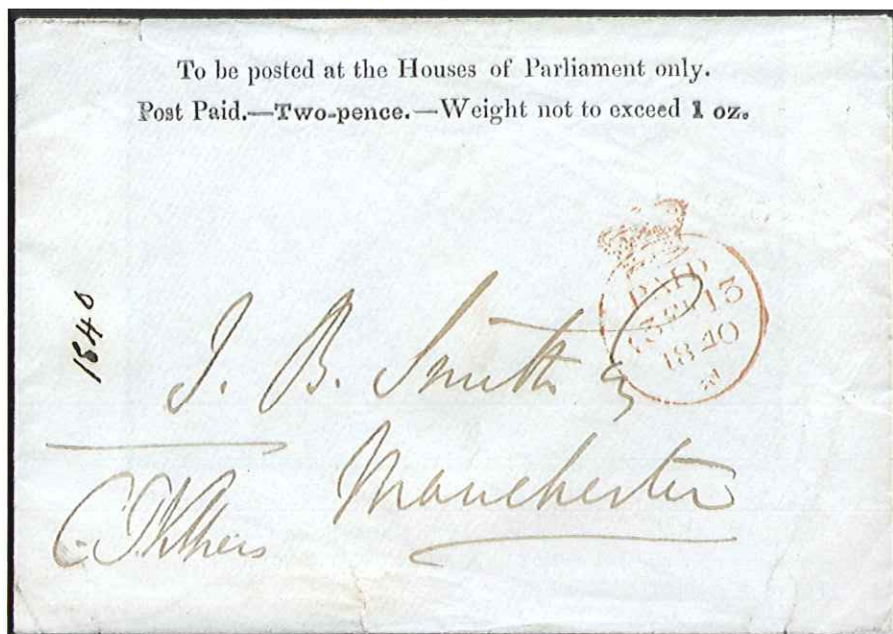 To be posted at the Houses of Parliament only.
Post Paid.—Two-pence.—Weight not to exceed 1 oz.
PAID
13 FE 13
1840
1840
J. B. Smith Esq
Manchester
C. P. Villiers